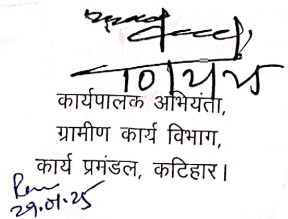 कार्यपालक अभियंता,
ग्रामीण कार्य विभाग,
कार्य प्रमंडल, कटिहार।
29.01.25